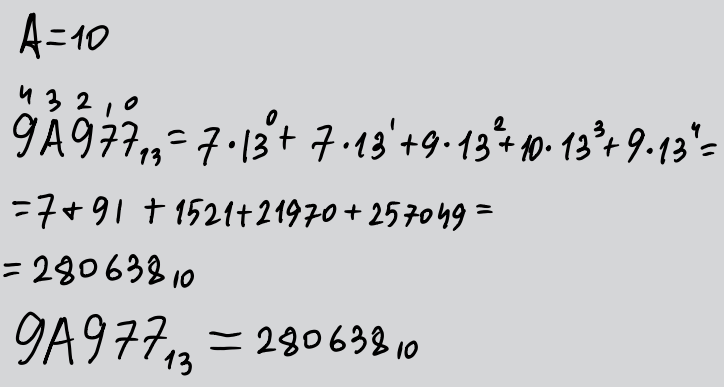 A=10
4 3 2 1 0
9A977₁₃ = 7·13⁰ + 7·13¹ + 9·13² + 10·13³ + 9·13⁴ =
= 7 + 91 + 1521 + 21970 + 257049 =
= 280638₁₀
9A977₁₃ = 280638₁₀